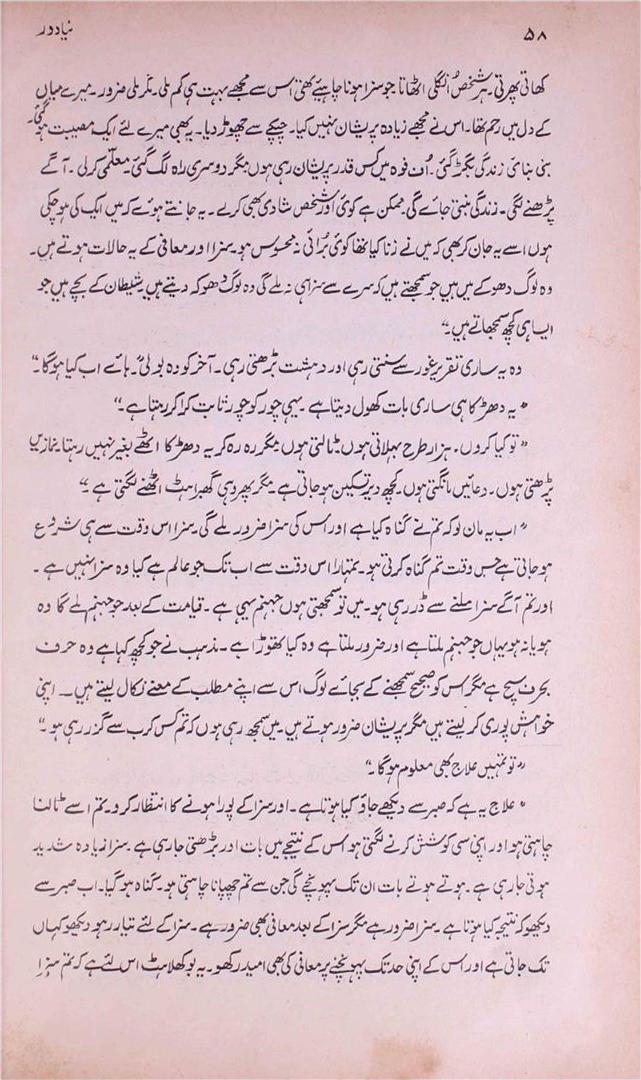 ۵۸
نیا دور
کھاتی پھرتی۔ ہر شخص انگلی اٹھاتا جو سزا ہونا چاہئیے تھی اس سے مجھے بہت ہی کم ملی۔ مگر ملی ضرور۔ میرے میاں
کے دل میں رحم تھا۔ اس نے مجھے زیادہ پریشان نہیں کیا۔ چپکے سے چھوڑ دیا۔ یہ بھی میرے لئے ایک مصیبت ہو گئی۔
بنی بنائی زندگی بگڑ گئی۔ اُف فوہ میں کس قدر پریشان رہی ہوں مگر دوسری راہ لگ گئی۔ معلّمی کر لی۔ آگے
پڑھنے لگی۔ زندگی بنتی جائے گی ممکن ہے کوئی اور شخص شادی بھی کرے۔ یہ جانتے ہوئے کہ میں ایک کی ہو چکی
ہوں اسے یہ جان کر بھی کہ میں نے زنا کیا تھا کوئی بُرائی نہ محسوس ہو۔ سزا اور معافی کے یہ حالات ہوتے ہیں۔
وہ لوگ دھوکے میں ہیں جو سمجھتے ہیں کہ سرے سے سزا ہی نہ ملے گی وہ لوگ دھوکہ دیتے ہیں۔ شیطان کے بچے ہیں جو
ایسا ہی کچھ سمجھاتے ہیں۔"
وہ یہ ساری تقریر غور سے سنتی رہی اور دہشت بڑھتی رہی۔ آخر کو وہ بولی۔ ہائے اب کیا ہو گا۔"
"یہ دھڑکا ہی ساری بات کھول دیتا ہے۔ یہی چور کو چور ثابت کرا کر رہتا ہے۔"
"تو کیا کروں۔ ہزار طرح بہلاتی ہوں۔ ٹالتی ہوں مگر رہ رہ کر یہ دھڑکا اٹھے بغیر نہیں رہتا۔ نمازیں
پڑھتی ہوں۔ دعائیں مانگتی ہوں۔ کچھ دیر تسکین ہو جاتی ہے۔ مگر پھر وہی گھبراہٹ اٹھنے لگتی ہے۔"
"اب یہ مان لو کہ تم نے گناہ کیا ہے اور اُس کی سزا ضرور ملے گی۔ سزا اس وقت سے ہی شروع
ہو جاتی ہے جس وقت تم گناہ کرتی ہو۔ تمہارا اس وقت سے اب تک جو عالم ہے کیا وہ سزا نہیں ہے۔
اور تم آگے سزا ملنے سے ڈر رہی ہو۔ میں تو سمجھتی ہوں جہنم یہی ہے۔ قیامت کے بعد جو جہنم ملے گا وہ
ہو یا نہ ہو یہاں جو جہنم ملتا ہے اور ضرور ملتا ہے وہ کیا تھوڑا ہے۔ مذہب نے جو کچھ کہا ہے وہ حرف
بحرف سچ ہے مگر اس کو صحیح سمجھنے کے بجائے لوگ اس سے اپنے مطلب کے معنے نکال لیتے ہیں۔ اپنی
خواہش پوری کر لیتے ہیں مگر پریشان ضرور ہوتے ہیں۔ میں سمجھ رہی ہوں کہ تم کس کرب سے گزر رہی ہو۔"
"تو تمہیں علاج بھی معلوم ہو گا۔"
"علاج یہ ہے کہ صبر سے دیکھے جاؤ کیا ہوتا ہے۔ اور سزا کے پورا ہونے کا انتظار کرو۔ تم اسے ٹالنا
چاہتی ہو اور اپنی سی کوشش کرنے لگتی ہو اس کے نتیجے میں بات اور بڑھتی جا رہی ہے۔ سزا زیادہ شدید
ہوتی جا رہی ہے۔ ہوتے ہوتے بات ان تک پہونچے گی جن سے تم چھپانا چاہتی ہو۔ گناہ ہو گیا۔ اب صبر سے
دیکھو کہ نتیجہ کیا ہوتا ہے۔ سزا ضرور ہے مگر سزا کے بعد معافی بھی ضرور ہے۔ سزا کے لئے تیار رہو دیکھو کہاں
تک جاتی ہے اور اس کے اپنی حد تک پہونچنے پر معافی کی بھی امید رکھو۔ یہ بوکھلاہٹ اس لئے ہے کہ تم سزا